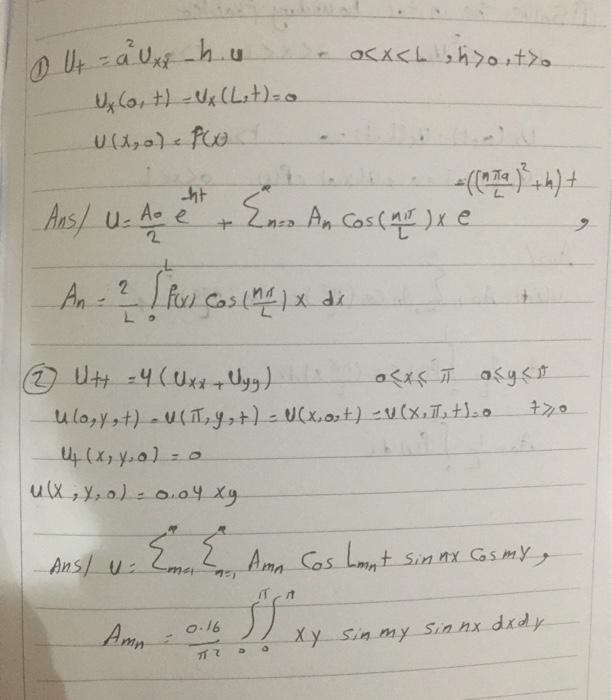 ① U_t = a²U_xx - h.u 0<x<L , h>0, t>0
U_x(0,t) = U_x(L,t)=0
U(x,0) = f(x)
Ans/ U = A₀/2 e^(-ht) + Σ_{n=0}^∞ A_n Cos(nπ/L)x e^(-((nπa/L)²+h)t) ,
A_n = 2/L ∫₀^L f(x) Cos(nπ/L)x dx
② U_tt = 4(U_xx + U_yy) 0≤x≤π 0≤y≤π
u(0,y,t) = U(π,y,t) = U(x,0,t) = U(x,π,t)=0 t≥0
U_t(x,y,0) = 0
u(x,y,0) = 0.04 xy
Ans/ U = Σ_{m=1}^∞ Σ_{n=1}^∞ A_mn Cos L_mn t sin nx Cos my ,
A_mn = 0.16/π² ∫₀^π ∫₀^π xy sin my sin nx dxdy